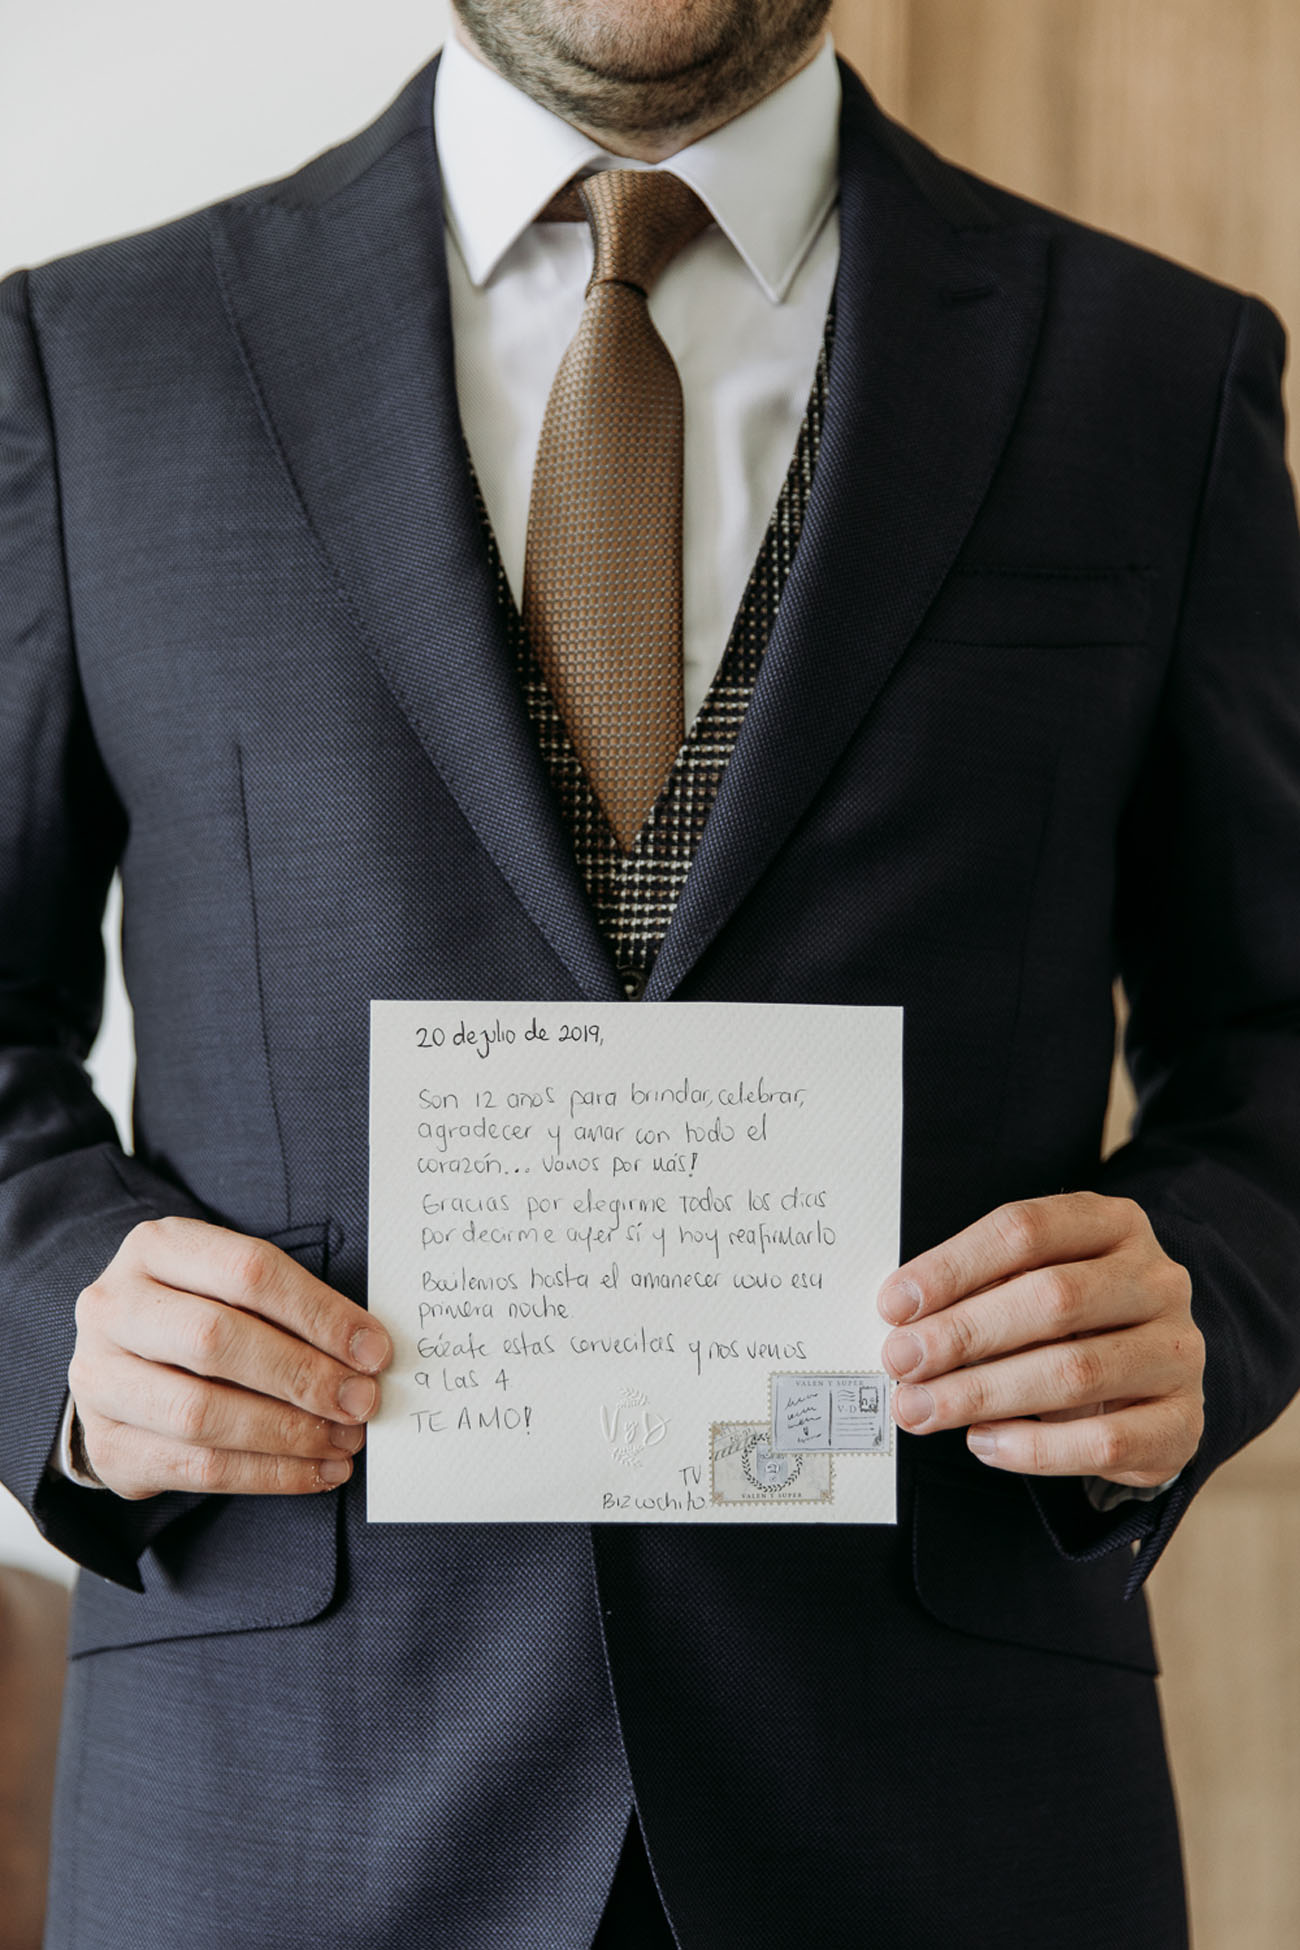 20 de julio de 2019,
Son 12 años para brindar, celebrar,
agradecer y amar con todo el
corazón... Vamos por más!
Gracias por elegirme todos los días
por decirme ayer sí y hoy reafirmarlo
Bailemos hasta el amanecer como esa
primera noche.
Gózate estas cervecitas y nos vemos
a las 4
TE AMO!
V y D
VALEN Y SUPER
V-D
VALEN Y SUPER
TU
Bizcochito